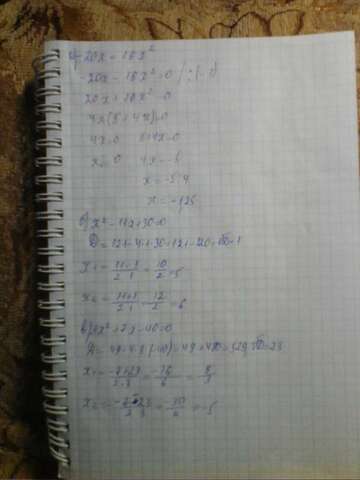 -20x = 16x²
-20x - 16x² = 0 / : (-1)
20x + 16x² = 0
4x(5 + 4x) = 0
4x = 0 5 + 4x = 0
x = 0 4x = -5
x = -5:4
x = -1,25
б) x² - 11x + 30 = 0
D = 121 - 4·1·30 = 121 - 120 = 1
x₁ = 11-1/2·1 = 10/2 = 5
x₂ = 11+1/2·1 = 12/2 = 6
+ 7x - 40 = 0
D = 49 - 4·3·(-40) = 49 + 480 = 529 √D = 23
x₁ = -7+23/2·3 = 16/6 = 8/3
x₂ = -7-23/2·3 = -30/6 = -5